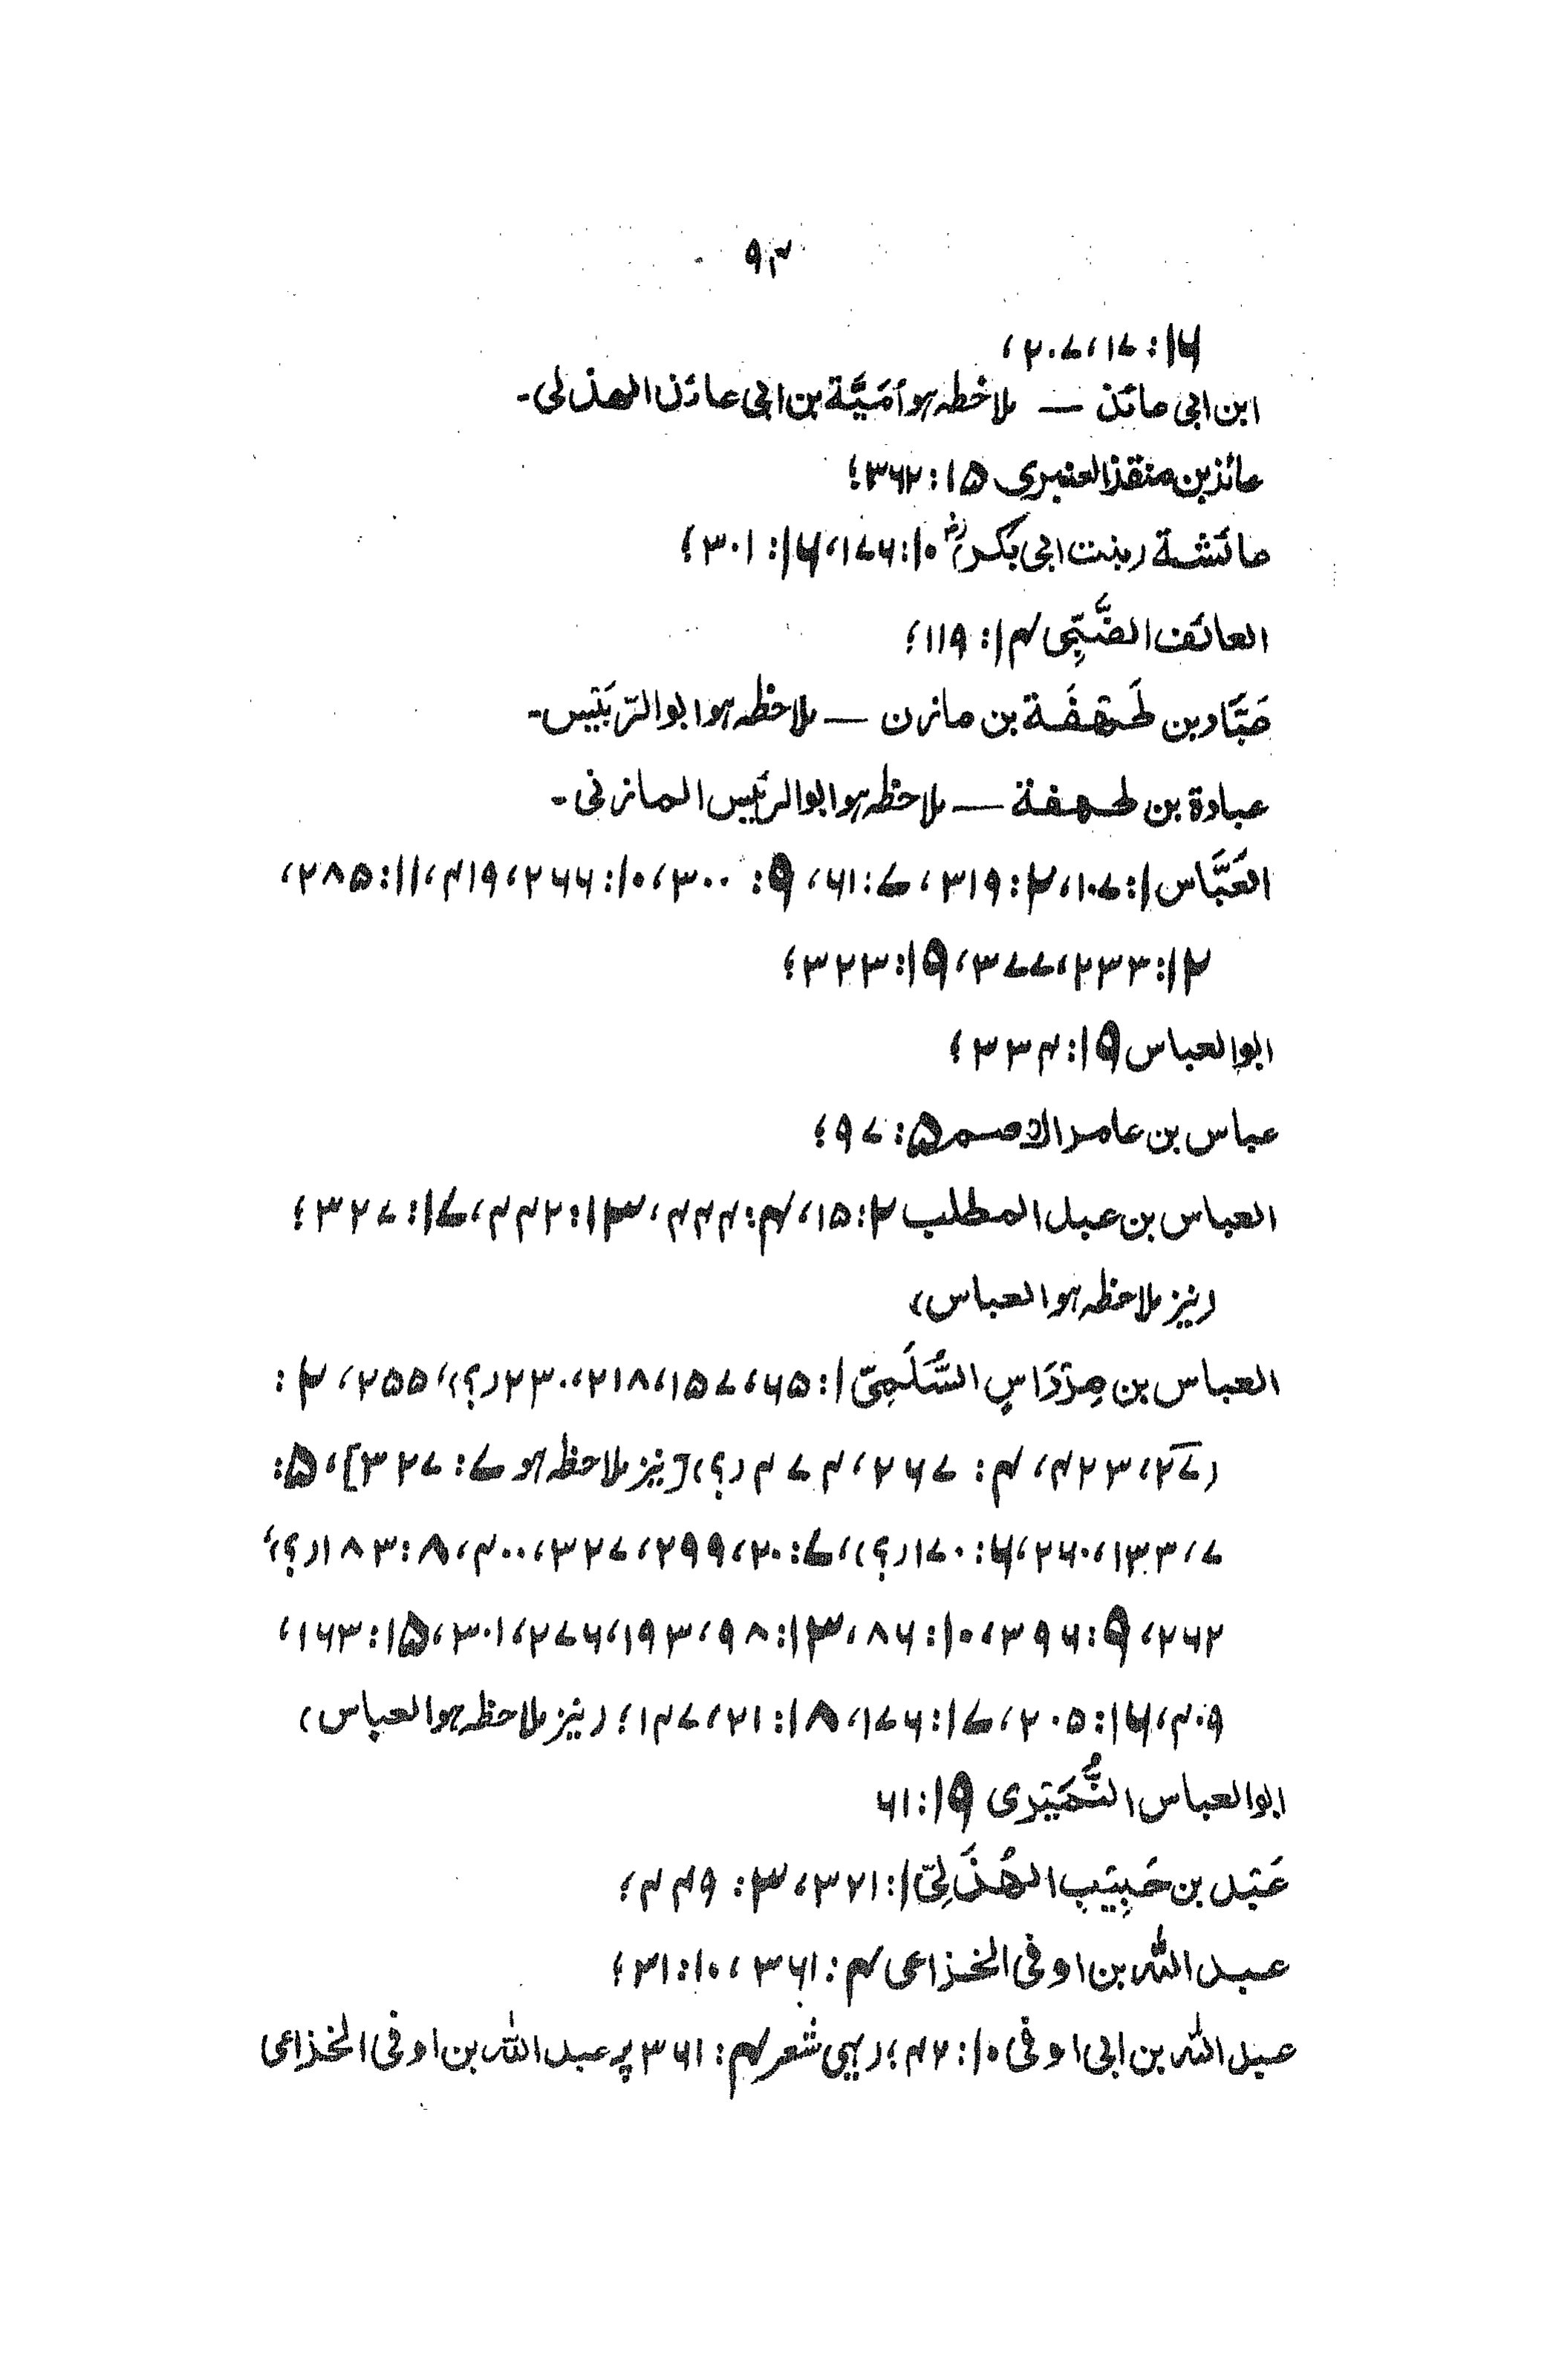 ۹۴
۱۶: ۱۷، ۲۰۷،
ابن ابی عائذ — ملاحظہ ہو اُمَیَّة بن ابی عائذ الهذلی۔
عائذ بن منقذ العنبری ۱۵: ۳۶۲؛
عائشة (بنت ابی بکر)رض ۱۰: ۱۷۶، ۱۶: ۳۰۱؛
العائف الضَّبِّی ۱۴: ۱۱۹؛
عَبَّاد بن طَهْفَة بن مازن — ملاحظہ ہو ابو الرّبَیْس۔
عبادة بن طهفة — ملاحظہ ہو ابو الرئیس المازنی۔
العَبَّاس ۱: ۱۰۷، ۲: ۳۱۹، ۷: ۶۱، ۹: ۳۰۰، ۱۰: ۲۶۶، ۴۱۹، ۱۱: ۲۸۵،
۱۲: ۲۳۳، ۳۷۷، ۱۹: ۳۲۳؛
ابو العباس ۱۹: ۳۳۴؛
عباس بن عامر الاصم ۵: ۹۷؛
العباس بن عبد المطلب ۲: ۱۵، ۴: ۴۴۴، ۱۳: ۴۴۲، ۱۷: ۳۲۷؛
(نیز ملاحظہ ہو العباس)
العباس بن مِرْدَاسٍ السُّلَمِیّ ۱: ۶۵، ۱۵۷، ۲۱۸، ۲۳۰(؟)، ۲۵۵، ۲:
(۲۷، ۴۲۳، ۴: ۲۶۷، ۴۷۴(؟)[نیز ملاحظہ ہو ۷: ۳۲۷]، ۵:
۷، ۱۳۳، ۲۶۰، ۶: ۱۷۰(؟)، ۷: ۲۰، ۲۹۹، ۳۲۷، ۴۰۰، ۸: ۱۸۳(؟)،
۲۶۲، ۹: ۳۹۶، ۱۰: ۸۶، ۱۳: ۹۸، ۱۹۳، ۲۷۶، ۳۰۱، ۱۵: ۱۶۳،
۴۰۹، ۱۶: ۲۰۵، ۱۷: ۱۷۶، ۱۸: ۲۱، ۱۴۷؛ (نیز ملاحظہ ہو العباس)
ابو العباس النُّمَیْری ۱۹: ۶۱
عَبْد بن حَبِیْبٍ الهُذَلِیّ ۱: ۳۲۱، ۳: ۴۴۹؛
عبد اللّٰه بن اوفی الخزاعی ۴: ۳۶۱، ۱۰: ۳۱؛
عبد اللّٰه بن ابی اوفی ۱۰: ۴۲؛ (یہی شعر ۴: ۳۶۱ پر عبد اللّٰه بن اوفی الخزاعی